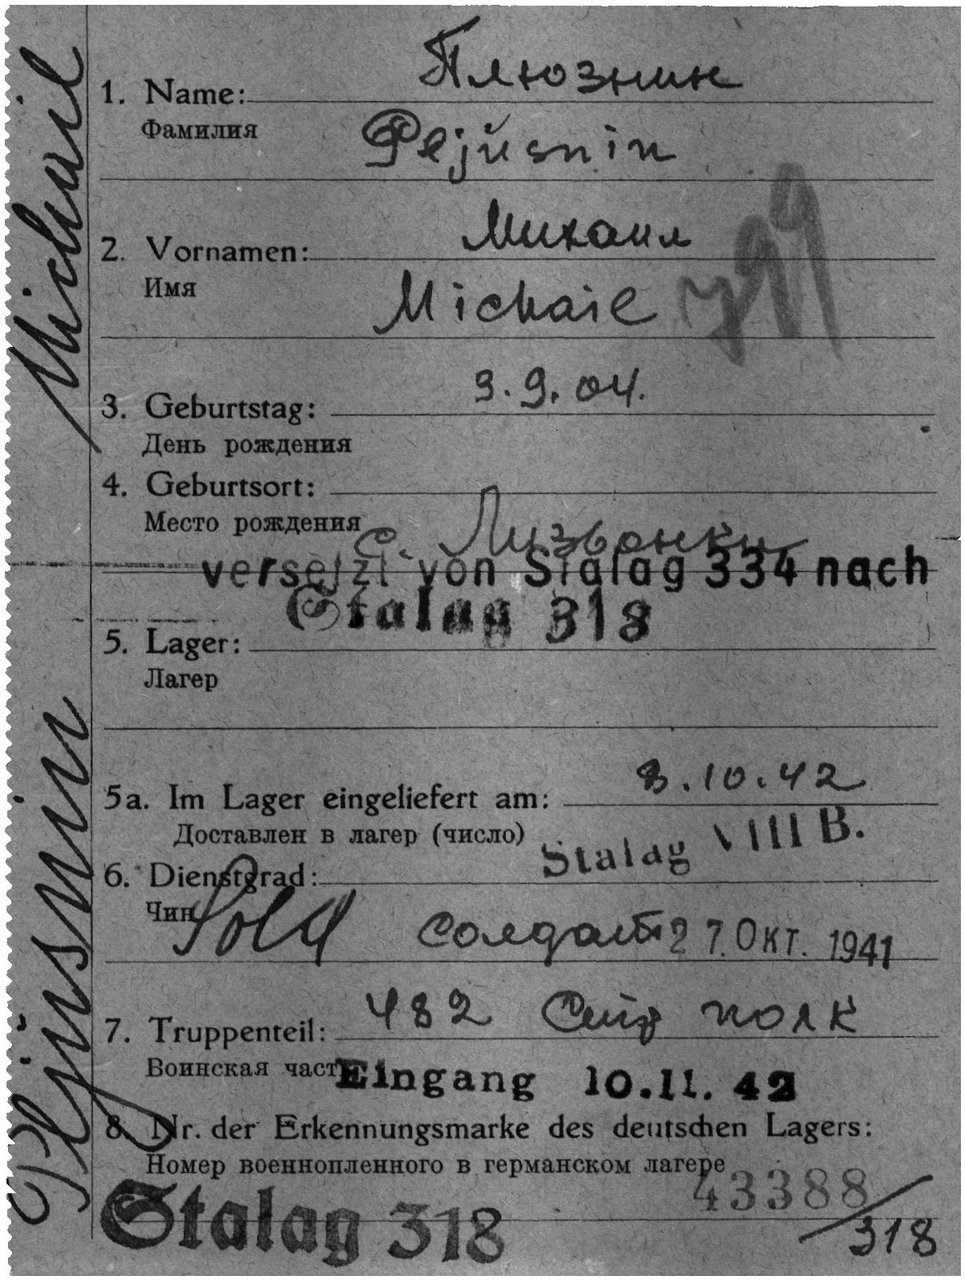 Плюзнин
1. Name:
Фамилия
Pejüsnin
Михаил
2. Vornamen:
Имя
Michail
9.9.04.
3. Geburtstag:
День рождения
4. Geburtsort:
Место рождения
с.
versetzt von Stalag 334 nach
Stalag 318
5. Lager:
Лагер
8.10.42
5a. Im Lager eingeliefert am:
Доставлен в лагер (число)
Stalag VIII B.
6. Dienstgrad:
Чин
Sold солдат 27. Окт. 1941
482 полк
7. Truppenteil:
Воинская част
Eingang 10.11.42
8. Nr. der Erkennungsmarke des deutschen Lagers:
Номер военнопленного в германском лагере
43388/318
Stalag 318
Pljüsnin Michail